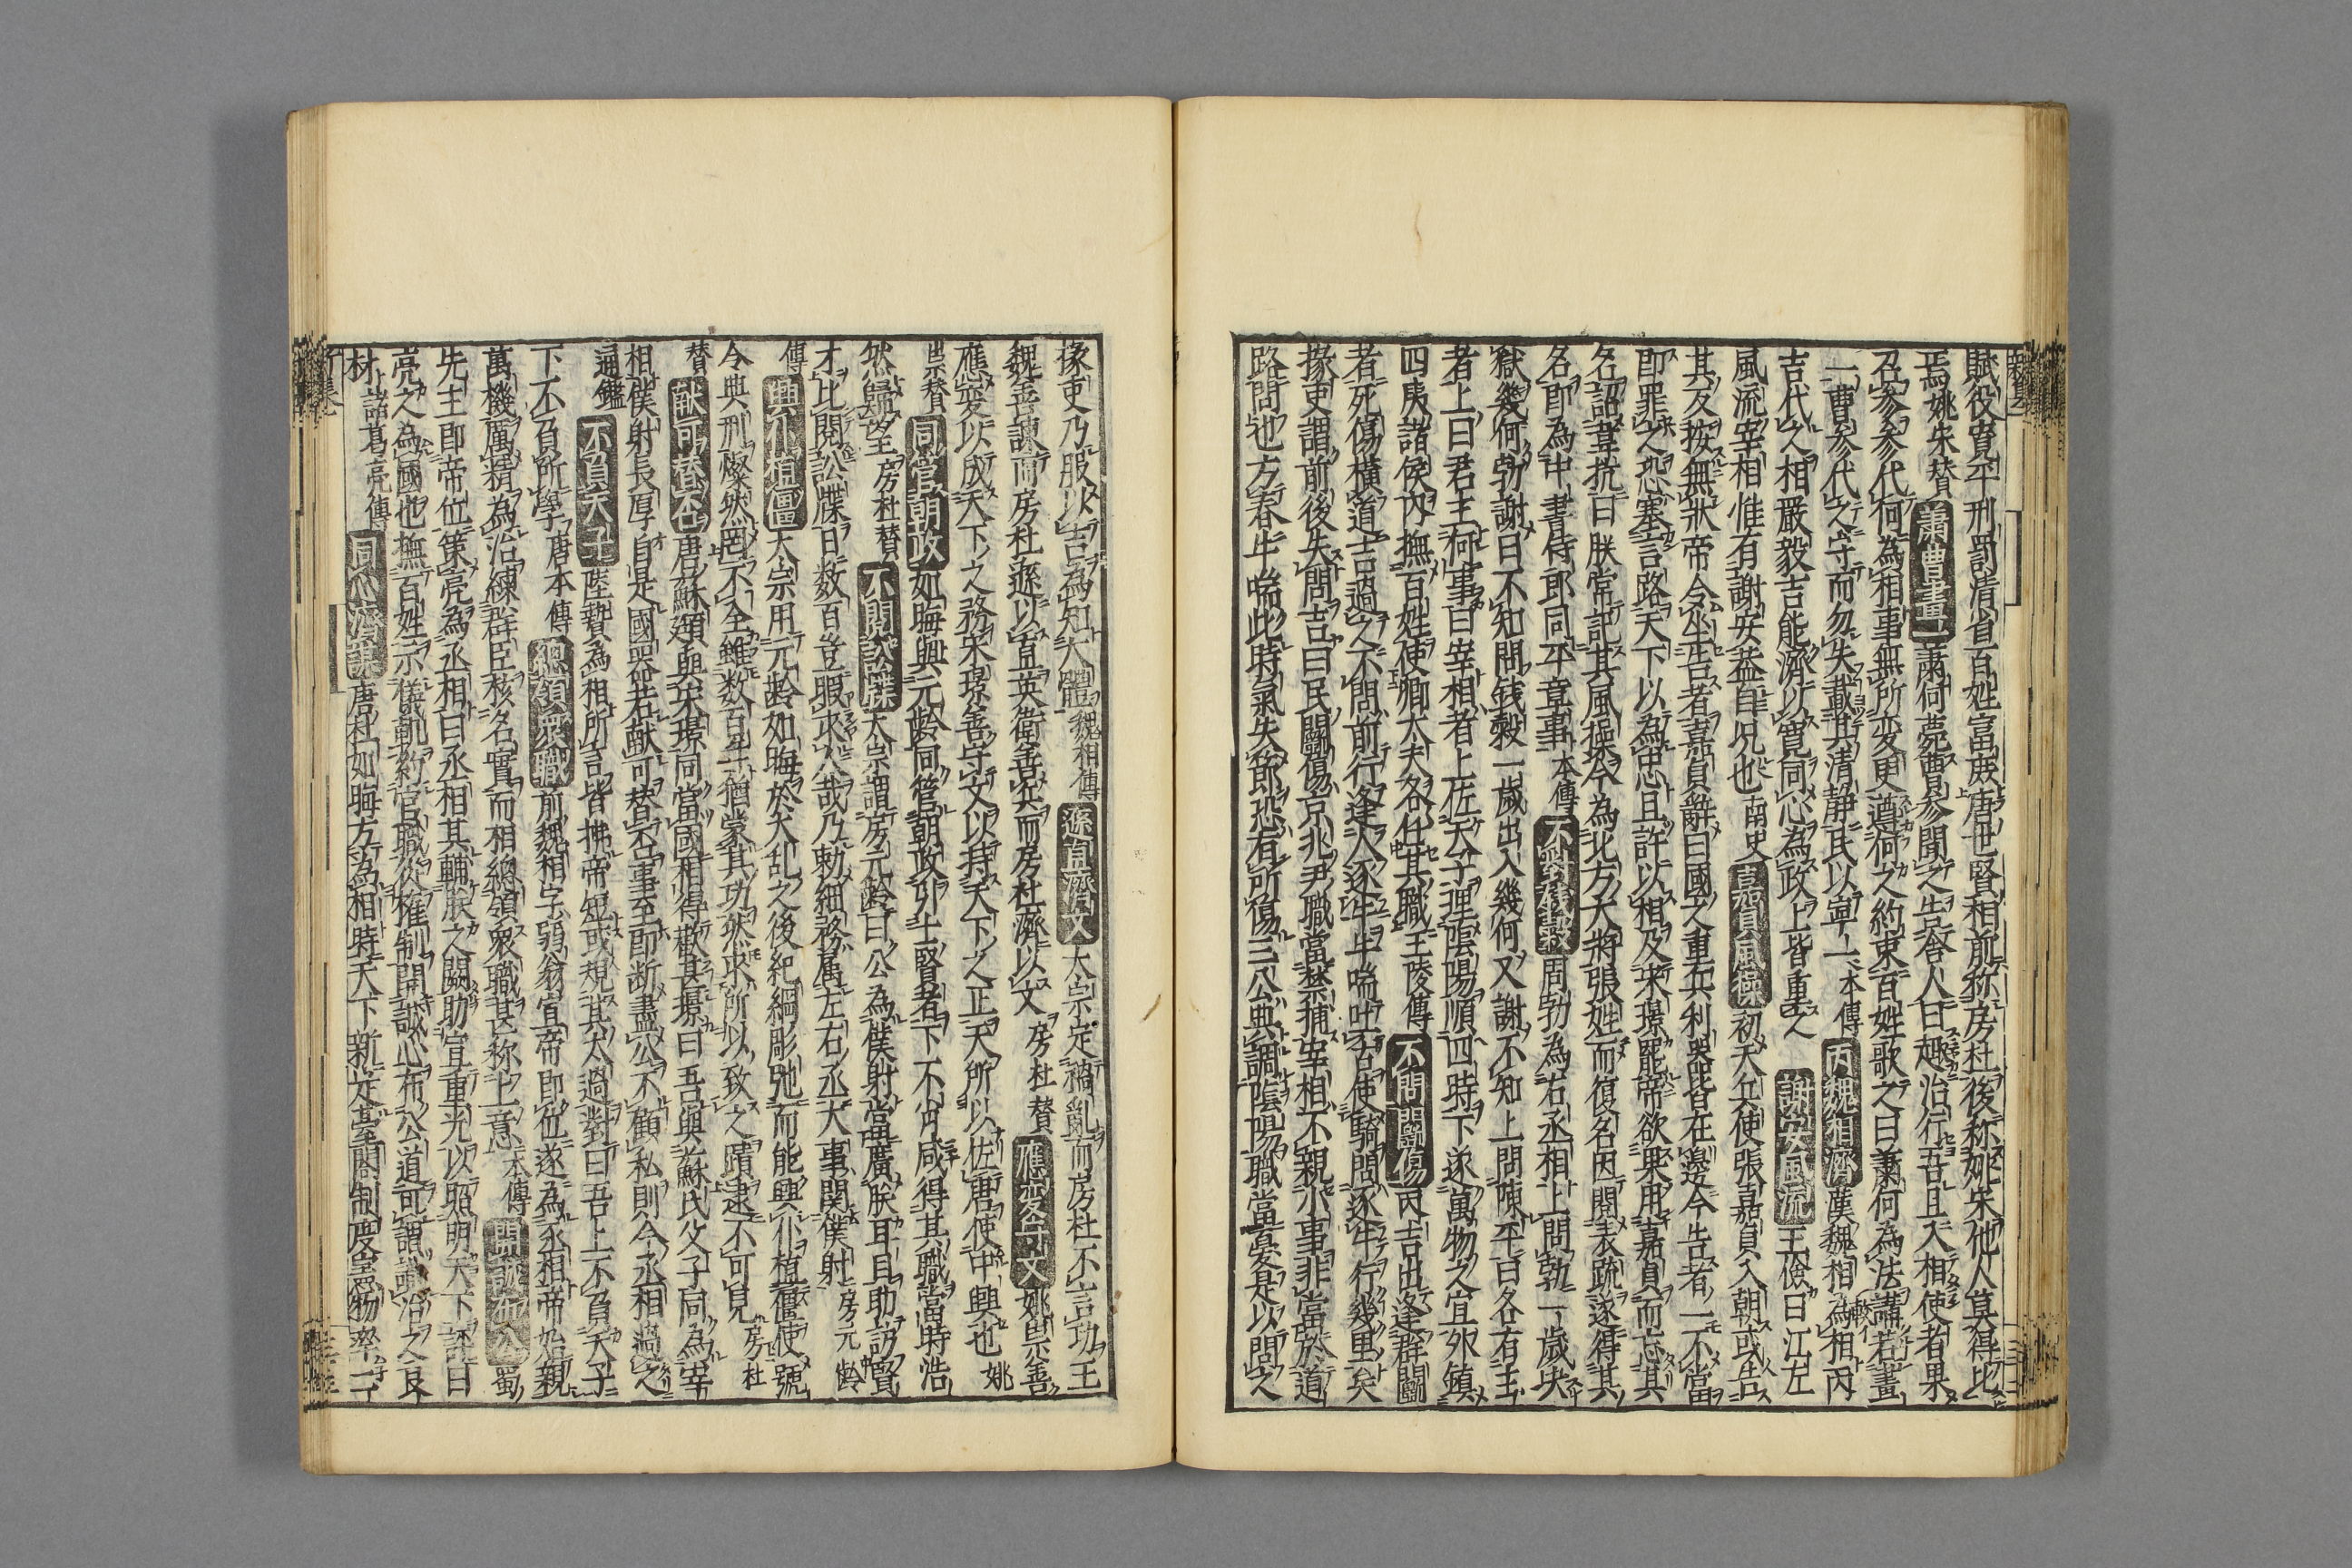 賦役寛平刑罰清省百姓富庶唐世賢相前称房杜後称姚宋他人莫得比
焉姚宋賛蕭曹畫一蕭何薨曹參聞之告舎人曰趣治行吾且入相使者果
召參參代何為相事無所変更遵何之約束百姓歌之曰蕭何為法講若畫
一曹參代之守而勿失載其清静民以寧一本傳丙魏相濟漢魏相為相丙
吉代之相嚴毅吉能濟以寛同心為政上皆重之謝安風流王儉曰江左
風流宰相惟有謝安葢自况也南史嘉貞風操初天兵使張嘉貞入朝或告
其反按無狀帝令坐告者嘉貞辭曰國之重兵利器皆在邊今告者一不當
即罪之恐塞言路天下以為忠且許以相及宋璟罷帝欲果用嘉貞而忘其
名詔韋抗曰朕常記其風操今為北方大將張姓而復名因閲表疏遂得其
名即為中書侍郎同平章事本傳不對錢穀周勃為右丞相上問勃一歲決
獄幾何勃謝曰不知問錢穀一歲出入幾何又謝不知上問陳平曰各有主
者上曰君主何事曰宰相者上佐天子理陰陽順四時下遂萬物之宜外鎮
四夷諸侯内撫百姓使卿大夫各任其職王陵傳不問鬪傷丙吉出逢群鬪
者死傷横道吉過之不問前行逢人逐牛牛喘吐舌使騎問逐牛行幾里矣
掾吏謂前後失問吉曰民鬪傷京兆尹職當禁捕宰相不親小事非當於道
路問也方春牛喘此時氣失節恐有所傷三公典調陰陽職當憂是以問之
掾吏乃服以吉為知大體魏相傳遜直濟文太宗定禍亂而房杜不言功王
魏善諫而房杜遜以直英衛善兵而房杜濟以文房杜賛應変守文姚崇善
應変以成天下之務宋璟善守文以持天下之正天所以佐唐使中興也姚
崇賛同管朝政如晦與元齡同管朝政引士賢者下不肖咸得其職當時浩
然歸望房杜賛不閲訟牒太宗謂房元齡曰公為僕射當廣朕耳目助訪賢
才比閲訟牒日数百豈暇求人哉乃勅細務属左右丞大事関僕射房元齡
傳興仆植僵太宗用元齡如晦於大乱之後紀綱彫弛而能興仆植僵使號
令典刑燦然罔不全雖数百年猶蒙其功然求所以致之蹟逮不可見房杜
賛献可替否唐蘇頲與宋璟同當國相得歡甚璟曰吾與蘇氏父子同為宰
相僕射長厚自是國器若献可替否事至即断盡公不顧私則今丞相過之
通鑑不負天子陸贄為相所言皆拂帝短或規其太過對曰吾上不負天子
下不負所學唐本傳總領衆職前魏相字弱翁宣帝即位遂為丞相帝始親
萬機厲精為治練群臣核名實而相總領衆職甚称上意本傳開誠布公蜀
先主即帝位策亮為丞相曰丞相其輔朕之闕助宣重光以照明天下評曰
亮之為國也撫百姓示儀軌約官職從権制開誠心布公道可謂識治之良
材諸葛亮傳同心濟謀唐杜如晦方為相時天下新定臺閣制度憲物率二